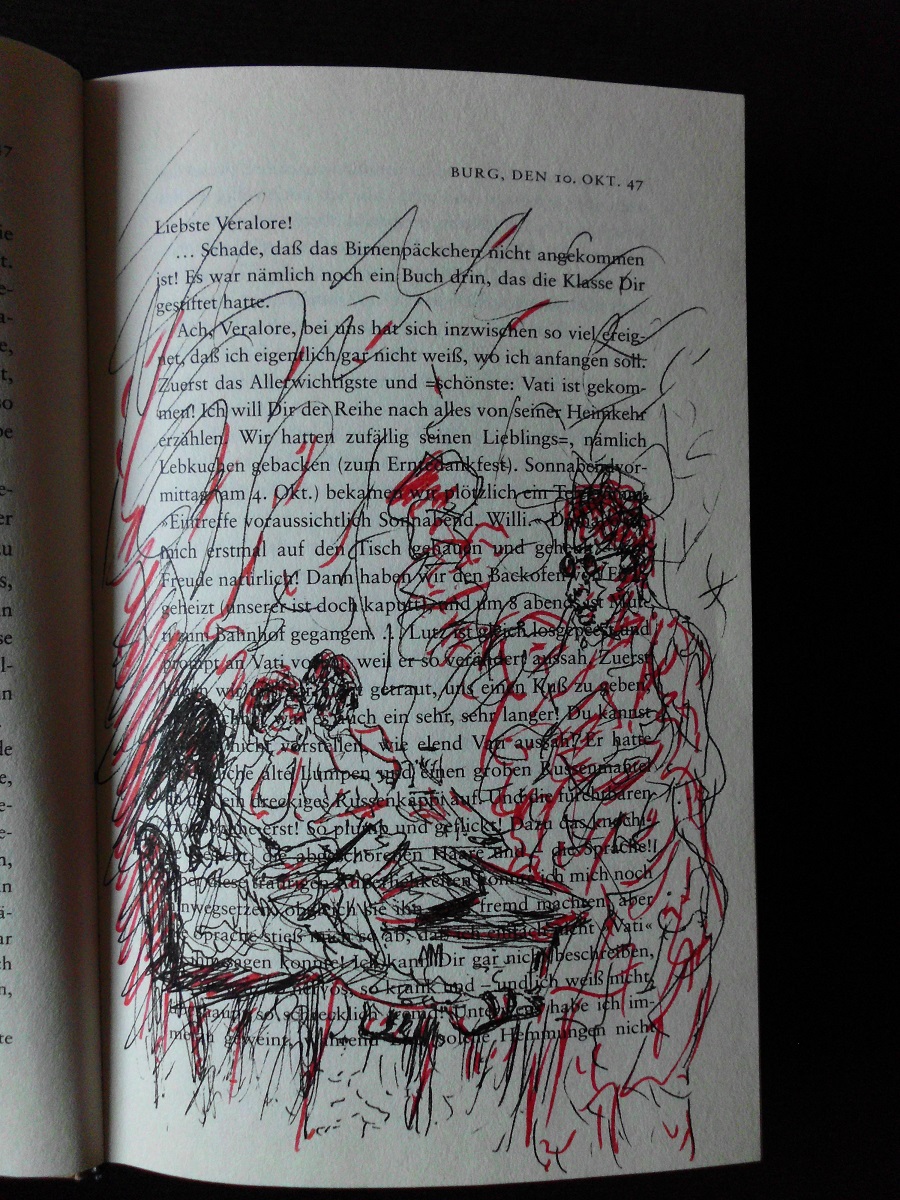 BURG, DEN 10. OKT. 47
Liebste Veralore!
… Schade, daß das Birnenpäckchen nicht angekommen
ist! Es war nämlich noch ein Buch drin, das die Klasse Dir
gestiftet hatte.
Ach, Veralore, bei uns hat sich inzwischen so viel ereig-
net, daß ich eigentlich gar nicht weiß, wo ich anfangen soll.
Zuerst das Allerwichtigste und =schönste: Vati ist gekom-
men! Ich will Dir der Reihe nach alles von seiner Heimkehr
erzählen. Wir hatten zufällig seinen Lieblings=, nämlich
Lebkuchen gebacken (zum Erntedankfest). Sonnabendvor-
mittag (am 4. Okt.) bekamen wir plötzlich ein
»Eintreffe voraussichtlich Sonnabend. Willi.«
mich erstmal auf den Tisch gehauen und
Freude natürlich! Dann haben wir den Backofen
geheizt (unserer ist doch kaputt), und um 8 abends ist
ti zum Bahnhof gegangen. … Lutz ist gleich losgepest und
prompt an Vati weil er so verändert aussah. Zuerst
getraut, uns einen Kuß zu geben,
war es auch ein sehr, sehr langer! Du kannst
nicht vorstellen, wie elend Vati aussah! Er hatte
alte Lumpen und einen groben Russenmantel
ein dreckiges Russenkäppi auf. Und die furchtbaren
erst! So plump und geflickt! Dazu das
die abgeschorenen Haare und – die Sprache!!
diese traurigen Äußerlichkeiten ich mich noch
inwegsetzen, obgleich sie ihn fremd machten, aber
Sprache stieß mich so ab, daß ich nicht »Vati«
sagen konnte! Ich kann Dir gar nicht beschreiben,
so krank und – und ich weiß nicht,
so schrecklich fremd! Unterwegs habe ich im-
geweint, während solche Hemmungen nicht
47